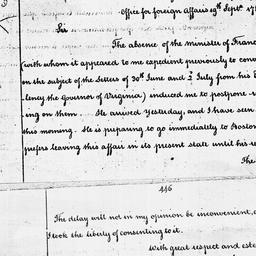 Office for foreign Affairs 19th Septr. 17
Sir
The absence of the minister of Franc
(with whom it appeared to me expedient previously to conv
on the subject of the Letters of 30th June and 2 July from his E
lency the Governor of Virginia) induced me to postpone
ing on them. He arrived Yesterday, and I have seen
this morning. He is preparing to go immediately to Boston
prefers leaving this affair in its present state until his re
The
446
The delay will not in my opinion be inconvenient,
I took the liberty of consenting to it.
With great respect and este